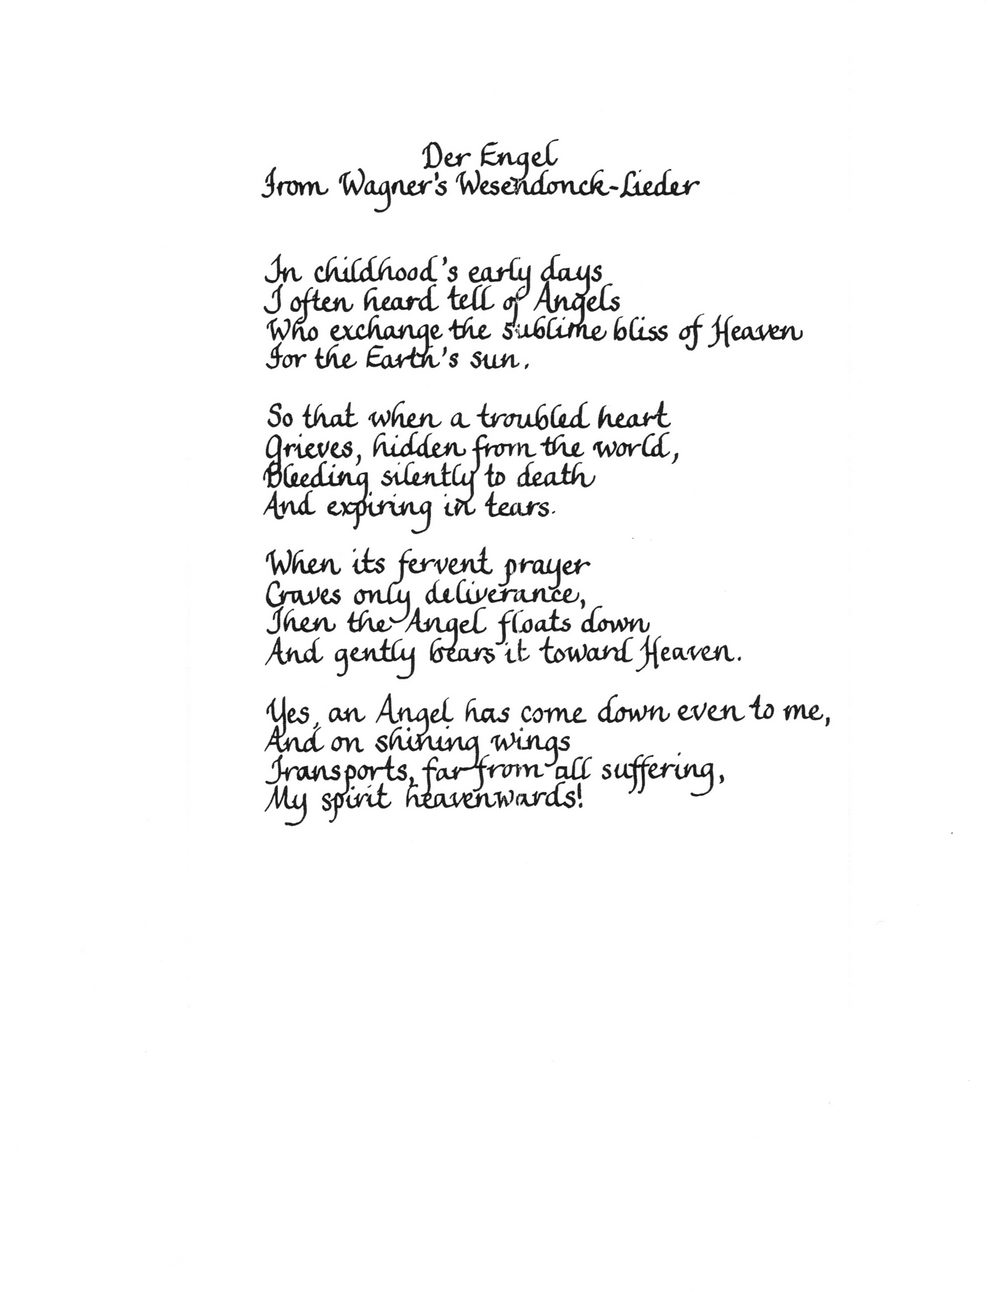 Der Engel
From Wagner's Wesendonck-Lieder
In childhood's early days
I often heard tell of Angels
Who exchange the sublime bliss of Heaven
For the Earth's sun.
So that when a troubled heart
Grieves, hidden from the world,
Bleeding silently to death
And expiring in tears.
When its fervent prayer
Craves only deliverance,
Then the Angel floats down
And gently bears it toward Heaven.
Yes, an Angel has come down even to me,
And on shining wings
Transports, far from all suffering,
My spirit heavenwards!